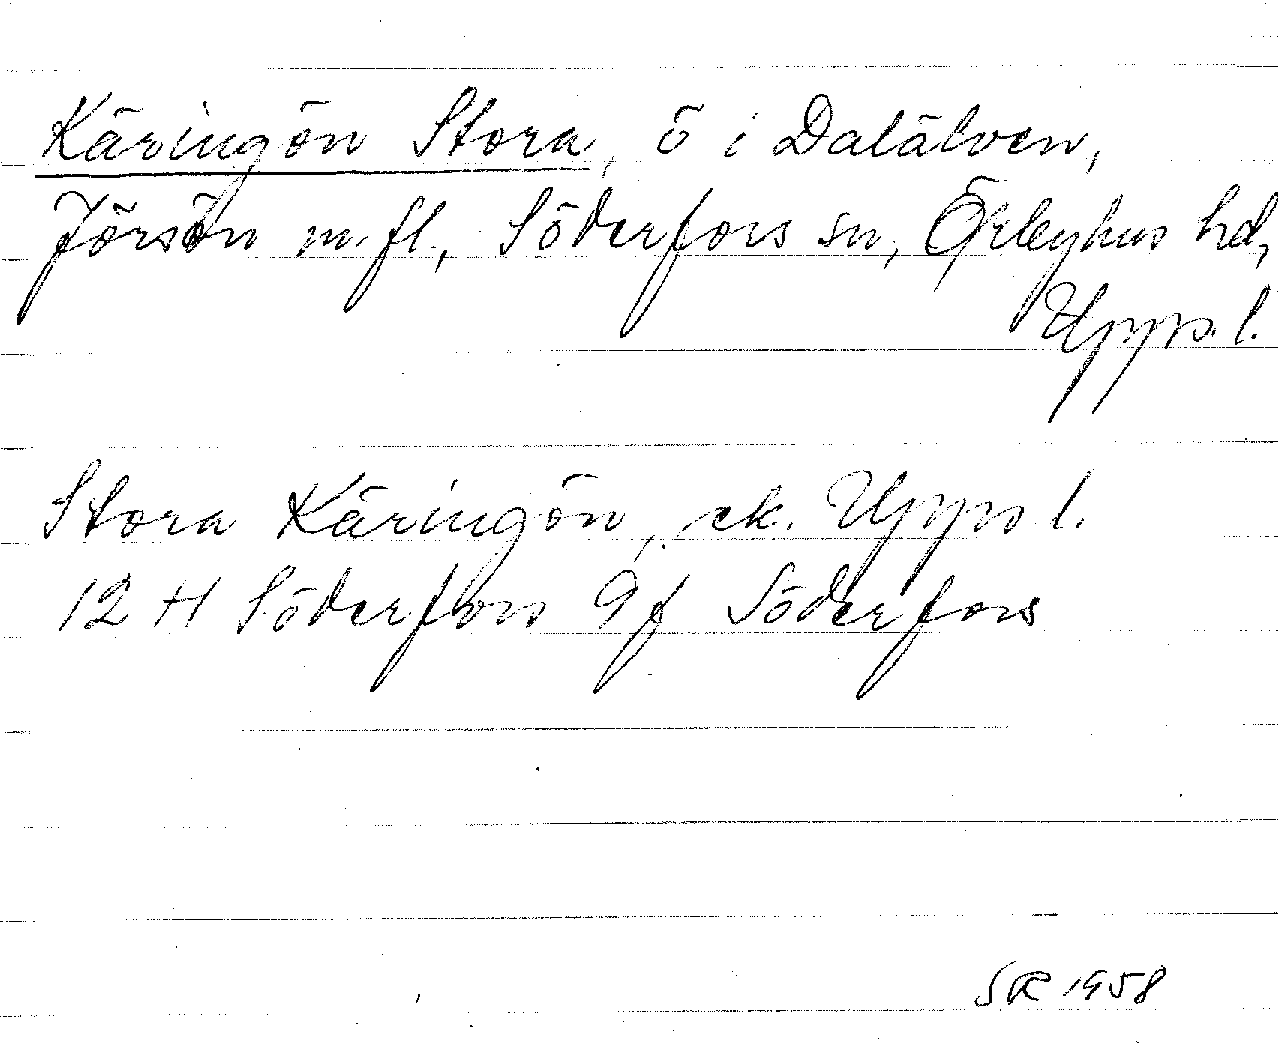 Käringön Stora, ö i Dalälven,
Jörsön m. fl., Söderfors sn, Örbyhus hd,
Upps. l.
Stora Käringön, ek. Upps l.
12 H Söderfors 9f Söderfors
SR 1958